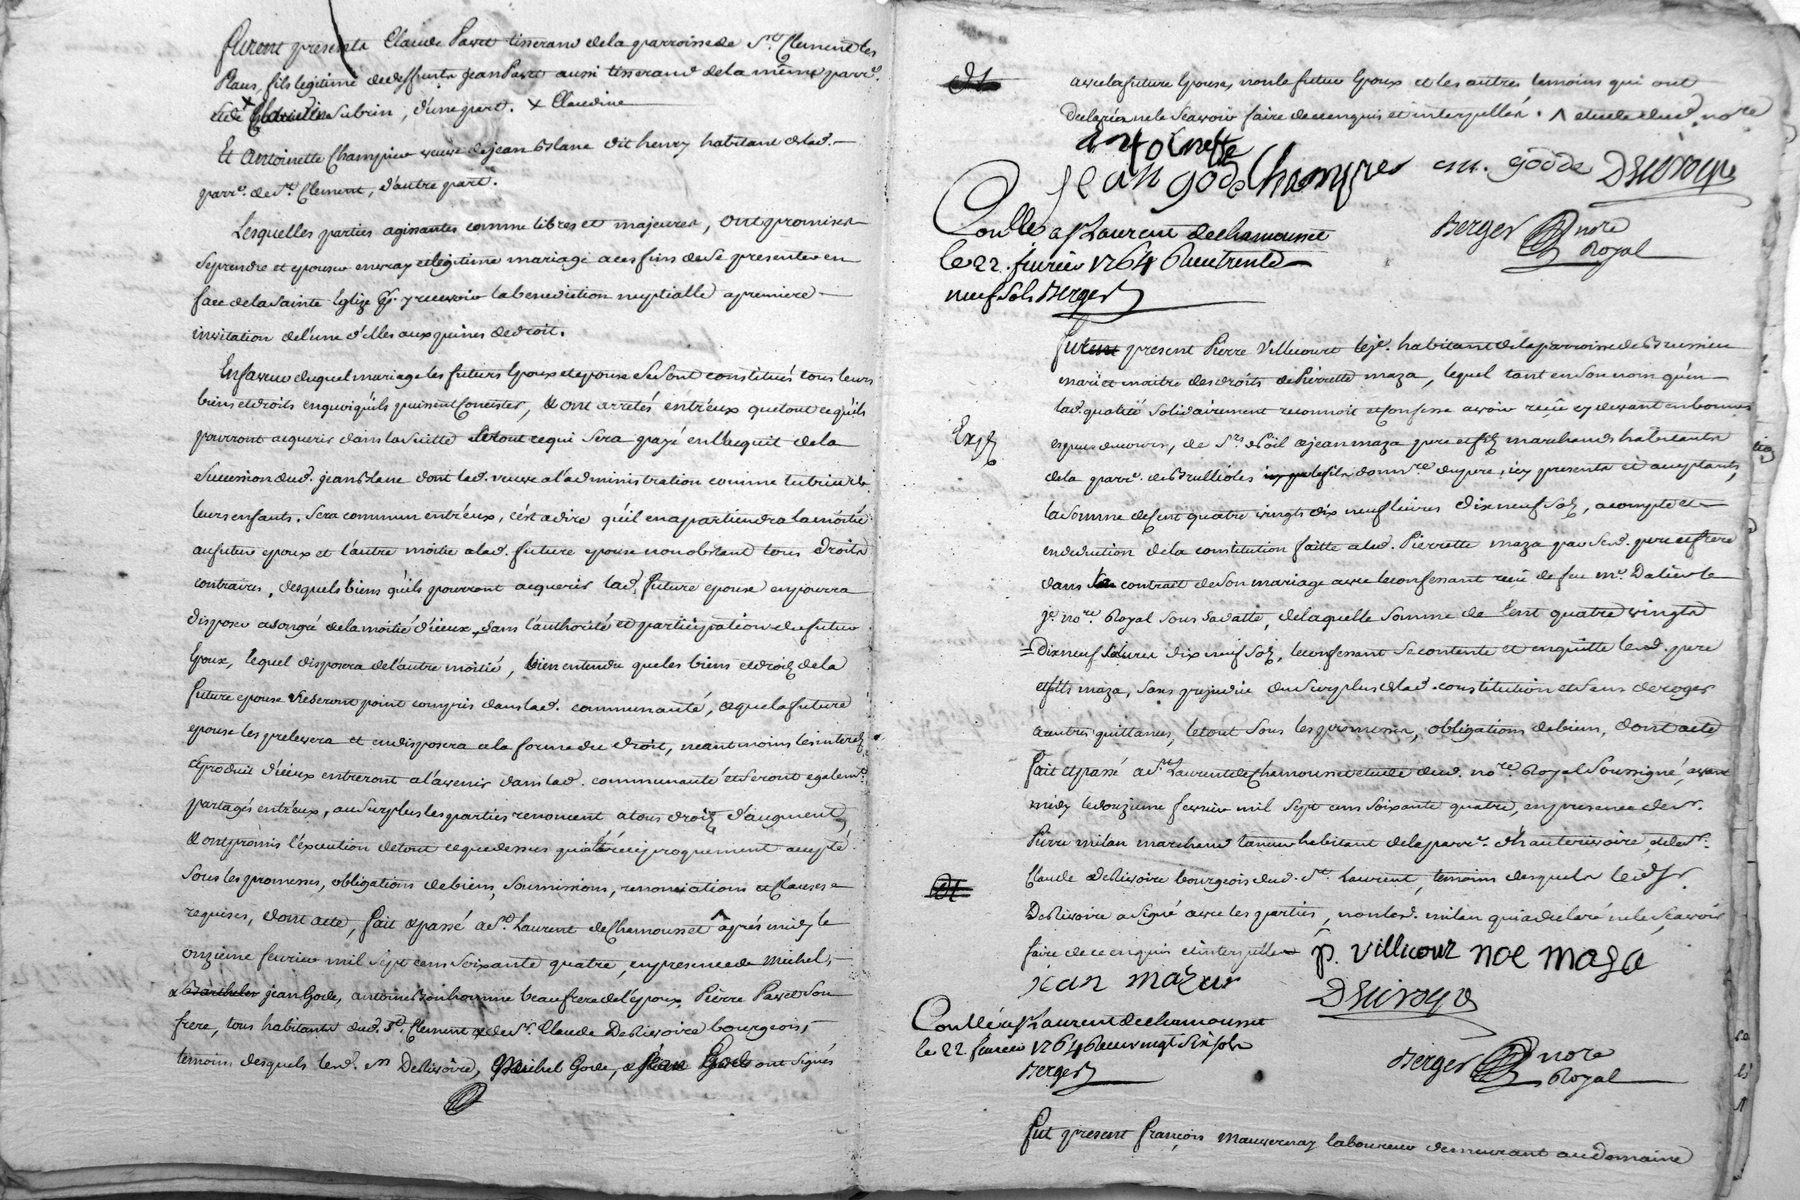 furent presents Claude Pavet tisserand de la parroisse de St. Clement les
Places, fils legitime de deffunts jean Pavet aussi tisserand de la même parr.
et de Subrin, d'une part. x Claudine
Et Antoinette Champier veuve de jean Blanc dit henry habitant de lad.
parr. de St. Clement, d'autre part.
Lesquelles parties agissantes comme libres et majeures, ont promis
se prendre et epouser en vray et legitime mariage a ces fins de se presenter en
face de la sainte Eglize pr. y recevoir la benediction nuptialle a premiere
invitation de l'une d'elles aux peines de droit.
En faveur duquel mariage les futurs Epoux et epouse se sont constitués tous leurs
biens et droits en quoi qu'ils puissent Consister, & ont arretés entr'eux que tout ce qu'ils
pourront acquerir dans la suitte et tout ce qui sera payé en l'acquit de la
succession dud. jean Blanc dont lad. veuve a l'administration comme tutrice de
leurs enfants, sera commun entr'eux, c'est a dire qu'il en apartiendra la moitié
au futur epoux et l'autre moitié a lad. future epouse nonobstant tous droits
contraires, desquels biens qu'ils pourront acquerir lad. future epouse en pourra
disposer a son gré de la moitié d'iceux, sans l'authorité et participation du futur
Epoux, lequel disposera de l'autre moitié, bien entendu que les biens et droits de la
future epouse ne seront point compris dans lad. communauté, et que la future
epouse les prelevera et en disposera a la forme du droit, neantmoins les interets
et produit d'iceux entreront a l'avenir dans lad. communauté et seront egalemt.
partagés entr'eux, au surplus les parties renoncent a tous droits d'augment,
& ont promis l'execution de tout ce que dessus qui a été reciproquement accepté
sous les promesses, obligations de biens, soumissions, renonciations et clauses
requises, dont acte, fait & passé a St. Laurent de Chamousset après midy le
onzieme fevrier mil sept cens soixante quatre, en presence de Michel,
jean Gode, antoine Bonhomme beaufrere de l'epoux, Pierre Pavet son
frere, tous habitants dud. St. Clement & de Sr. Claude DeRivoire bourgeois,
temoins desquels led. Sr. DeRivoire, Michel Gode, & jean Gode ont signés
avec la future Epouse, non le futur Epoux et les autres temoins qui ont
declarés ne le scavoir faire de ce enquis et interpellés. ^ etude dud. nore
antoinette
jean gode Champier m. godde DRivoyre
Conllé a St Laurent de chamousset
le 22 fevrier 1764 Reçu trente
neuf sols Berger
Berger nore
Royal
fut present Pierre Villicourt habitant de la parroisse de Brussieu
mari et maitre des droits de Pierrette maza, lequel tant en son nom qu'en
lad. qualité solidairement reconnoit et confesse avoir reçu cy devant en bonnes
Expé
especes de cours, de Srs. Noël & jean maza pere et fils marchands habitants
de la parr. de Brullioles du pere, icy presents et acceptants,
la somme de Cent quatre vingts dix neuf livres dix neuf sols, a compte et
en deduction de la constitution faitte a lad. Pierrette maza par sesd. pere et frere
dans son contrat de son mariage avec le confessant reçu de feu me. Dalier le
je. nore Royal sous sa datte, de laquelle somme de Cent quatre vingts
dix neuf livres dix neuf sols, le confessant se contente et en quitte lesd. pere
et fils maza, sans prejudice du surplus de lad. constitution et sans deroger
a autres quittances, le tout sous les promesses, obligations de biens, dont acte
fait et passé a St. Laurent de Chamousset etude dud. nore Royal soussigné, avant
midy le douzieme fevrier mil sept cens soixante quatre, en presence de Sr.
Pierre milan marchand tanneur habitant de la parr. d'hauterivoire, & de Sr.
Claude DeRivoire bourgeois dud. St. Laurent, temoins desquels led. Sr.
DeRivoire a signé avec les parties, non led. milan qui a declaré ne le scavoir
faire de ce enquis et interpellé p. villicour noe maza
jean maza DRivoyre
Conllé a St Laurent de chamousset
le 22 fevrier 1764 Reçu vingt six sols
Berger
Berger nore
Royal
fut present françois mauvernay laboureur demeurant au domaine